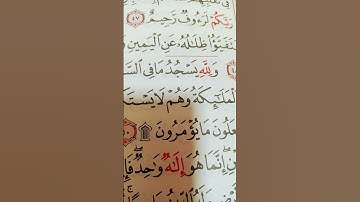 رَبَّكُمْ لَرَءُوفٌ رَّحِيمٌ ٤٧
تَفَيَّؤُا۟ ظِلَٰلُهُۥ عَنِ ٱلْيَمِينِ
وَلِلَّهِ يَسْجُدُ مَا فِى ٱلسَّ
ٱلْمَلَٰٓئِكَةُ وَهُمْ لَا يَسْتَ
عَلُونَ مَا يُؤْمَرُونَ ۩
إِنَّمَا هُوَ إِلَٰهٌ وَٰحِدٌ فَإِ